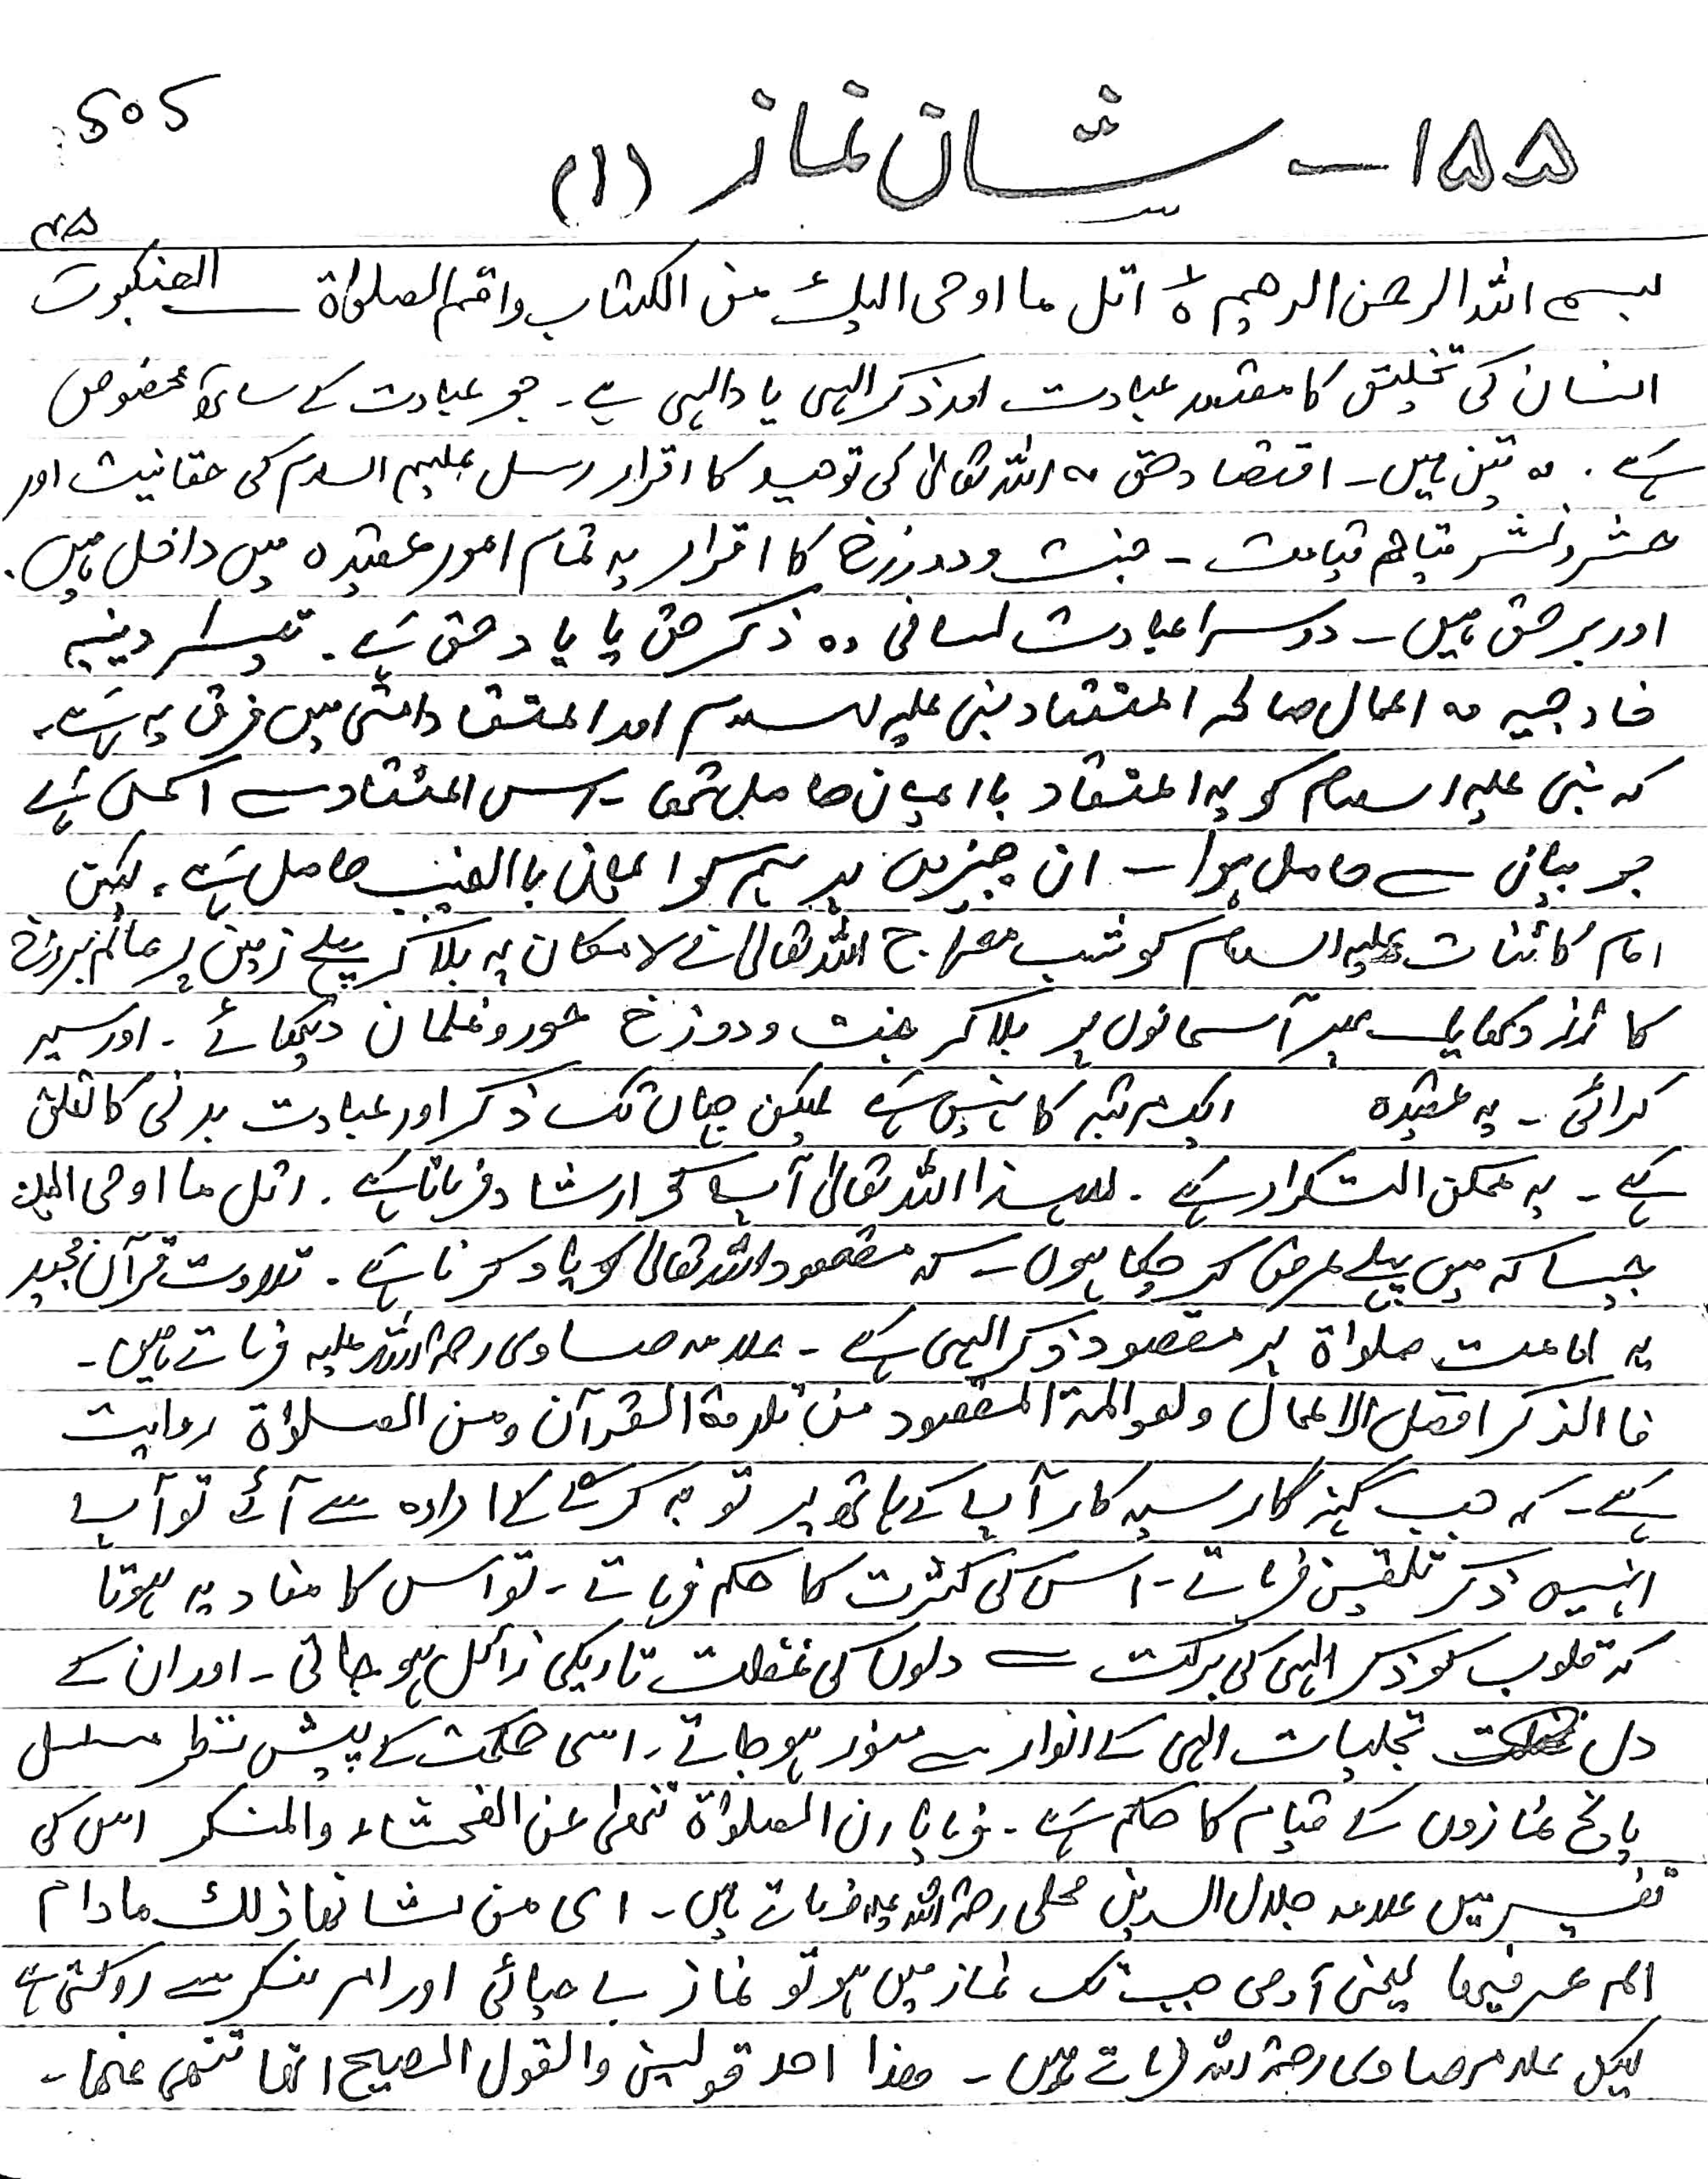 505
۱۵۵ - شان نماز (۱)
۴۵
بسم اللہ الرحمن الرحیم ہ اتل ما اوحی الیک من الکتاب واقم الصلوٰۃ العنکبوت
انسان کی تخلیق کا مقصد عبادت اور ذکر الہی یا د الہی ہے۔ جو عبادت کے ساتھ مخصوص
ہے۔ وہ تین ہیں۔ اعتقاد حق وہ اللہ تعالیٰ کی توحید کا اقرار رسل علیہم السلام کی حقانیت اور
حشر و نشر قیام قیامت - جنت و دوزخ کا اقرار یہ تمام امور عقیدہ میں داخل ہیں۔
اور برحق ہیں۔ دوسرا عبادت لسانی وہ ذکر حق یا یاد حق ہے۔ تیسرا
خارجیہ وہ اعمال صالحہ اعتقاد نبی علیہ السلام اور اعتقاد امتی میں فرق یہ ہے۔
کہ نبی علیہ اسلام کو یہ اعتقاد باایمان حاصل تھا۔ اس اعتقاد سے اکمل ہے
جو بیانی سے حاصل ہوا۔ ان چیزوں پر ہم کو ایمان باالغیب حاصل ہے۔ لیکن
امام کائنات علیہ السلام کو شب معراج اللہ تعالیٰ نے لامکان پہ بلا کر پہلے زمین پر عالم برزخ
کا دکھایا۔ پھر آسمانوں پر بلا کر جنت و دوزخ حور و غلمان دیکھائے۔ اور سیر
کرائی۔ یہ عقیدہ ایک مرتبہ کا نہیں ہے لیکن جہاں تک ذکر اور عبادت بدنی کا تعلق
ہے۔ یہ ممکن التکرار ہے۔ لہذا اللہ تعالیٰ آپ کو ارشاد فرماتا ہے۔ اتل ما اوحی الیک
جیسا کہ میں پہلے عرض کر چکا ہوں۔ کہ مقصود اللہ تعالیٰ کو یاد کرنا ہے۔ تلاوت قرآن مجید
یہ اقامت صلواۃ پر مقصود ذکر الہی ہے۔ علامہ صاوی رحمۃ اللہ علیہ فرماتے ہیں۔
فا الذکر افضل الاعمال وھو المقصود من تلاوۃ القرآن ومن الصلواۃ روایت
ہے۔ کہ جب گنہگار سیہ کار آپ کے ہاتھ پر توبہ کرنے کے ارادہ سے آئے تو آپ
انہیں ذکر تلقین فرماتے۔ اس کی کثرت کا حکم فرماتے۔ تو اس کا مفاد یہ ہوتا
کہ قلوب کو ذکر الہی کی برکت سے دلوں کی غفلت تاریکی زائل ہو جاتی۔ اور ان کے
دل تجلیات الہی کے انوار سے منور ہو جاتے۔ اسی حکمت کے پیش نظر مسلسل
پانچ نمازوں کے قیام کا حکم ہے۔ فرمایا ان الصلوٰۃ تنھیٰ عن الفحشاء والمنکر اس کی
تفسیر میں علامہ جلال الدین محلی رحمۃ اللہ علیہ فرماتے ہیں۔ ای من شانھا ذلک مادام
المرء فیھا یعنی آدمی جب تک نماز میں ہو تو نماز بے حیائی اور امر منکر سے روکتی ہے
لیکن علامہ صاوی رحمۃ اللہ فرماتے ہیں۔ ھذا احد قولین والقول الصیح انھا تنھی عنھا۔